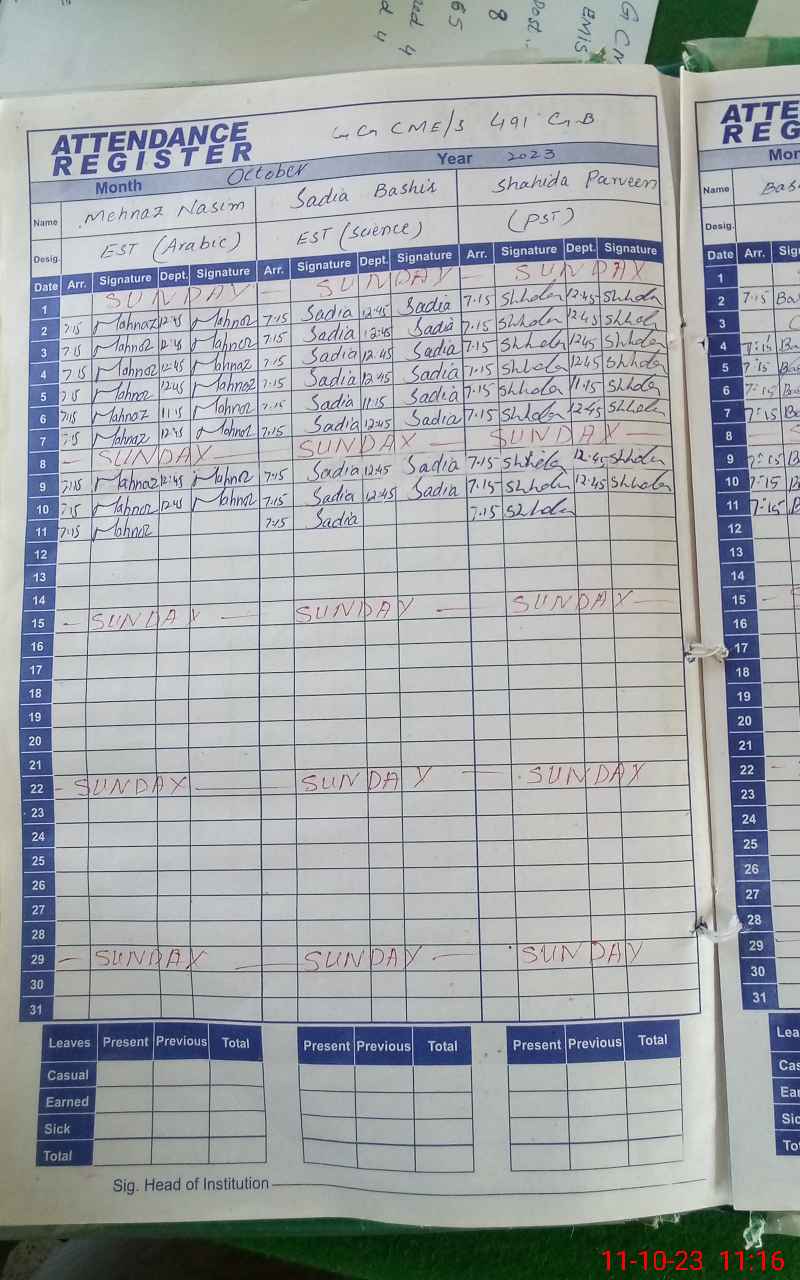 G CM
EMIS
Post..
8
65
ed 4
d 4
ATTENDANCE
REGISTER
GG CME/S 491 GB
Month October Year 2023
Name Mehnaz Nasim Sadia Bashir Shahida Parveen
Desig. EST (Arabic) EST (science) (PST)
Date Arr. Signature Dept. Signature Arr. Signature Dept. Signature Arr. Signature Dept. Signature
1 SUNDAY SUNDAY SUNDAY
2 7:15 Mahnaz 12:45 Mahnoz 7:15 Sadia 12:45 Sadia 7.15 Shhda 12:45 Shhda
3 7:15 Mahnoz 12:45 Mahnoz 7:15 Sadia 12:45 Sadia 7.15 Shhda 12.45 Shhda
4 7:15 Mahnoz 12:45 Mahnaz 7:15 Sadia 12:45 Sadia 7.15 Shhda 12.45 Shhda
5 7:15 Mahnoz 12:45 Mahnoz 7:15 Sadia 12:45 Sadia 7.15 Shhda 12.45 Shhda
6 7:15 Mahnaz 11:15 Mahnoz 7:15 Sadia 11:15 Sadia 7.15 Shhda 11.15 Shhda
7 7:15 Mahnaz 12:45 Mahnoz 7:15 Sadia 12:45 Sadia 7.15 Shhda 12.45 Shhda
8 SUNDAY SUNDAY SUNDAY
9 7:15 Mahnaz 12:45 Mahnoz 7:15 Sadia 12:45 Sadia 7.15 Shhda 12.45 Shhda
10 7:15 Mahnoz 12:45 Mahnoz 7:15 Sadia 12:45 Sadia 7.15 Shhda 12.45 Shhda
11 7:15 Mahnoz 7:15 Sadia 7.15 Shhda
12
13
14
15 SUNDAY SUNDAY SUNDAY
16
17
18
19
20
21
22 SUNDAY SUNDAY SUNDAY
23
24
25
26
27
28
29 SUNDAY SUNDAY SUNDAY
30
31
Leaves Present Previous Total Present Previous Total Present Previous Total
Casual
Earned
Sick
Total
Sig. Head of Institution
ATTE
REG
Mon
Name Bas
Desig.
Date Arr. Sig
1
2 7:15 Ba
3
4 7:15 Ba
5 7:15 Ba
6 7:15 Ba
7 7:15 Ba
8
9 7:15 B
10 7:15 B
11 7:15 B
12
13
14
15
16
17
18
19
20
21
22
23
24
25
26
27
28
29
30
31
Lea
Cas
Ear
Sic
To
11-10-23 11:16